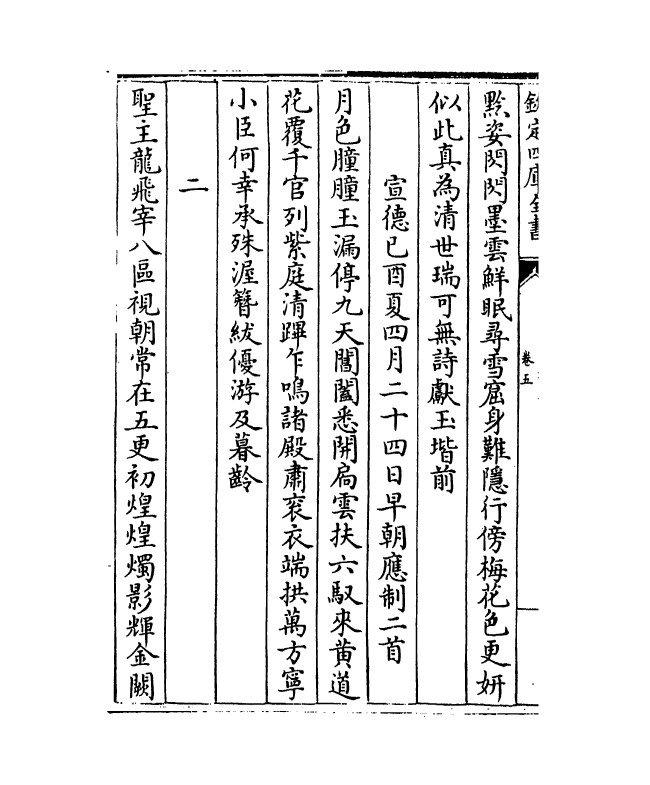 欽定四庫全書
卷五
黙姿閃閃墨雲鮮眠尋雪窟身難隱行傍梅花色更妍
似此真為清世瑞可無詩獻玉堦前
宣德己酉夏四月二十四日早朝應制二首
月色朣朣玉漏停九天閶闔悉開扄雲扶六馭來黄道
花覆千官列紫庭清蹕乍鳴諸殿肅衮衣端拱萬方寧
小臣何幸承殊渥簪紱優游及暮齡
二
聖主龍飛宰八區視朝常在五更初煌煌燭影輝金闕